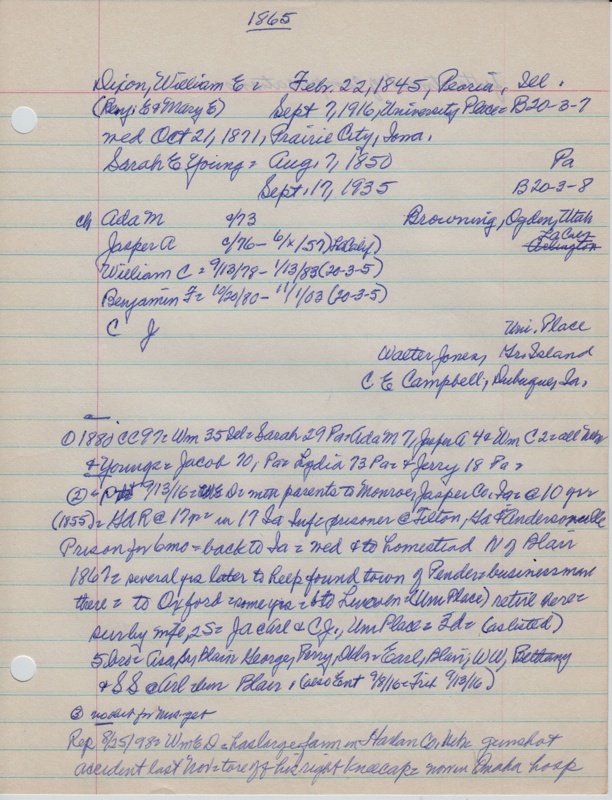 1865
Dixon, William E = Febr. 22, 1845, Peoria, Ill.
(Benj. E & Mary E) Sept 7, 1916, University Place = B20-3-7
wed Oct 21, 1871, Prairie City, Iowa.
Sarah E Young = Aug. 7, 1850 Pa
Sept. 17, 1935 B20-3-8
ch Ada M c/73 Browning, Ogden, Utah
Jasper A c/76 - 6/x/57
William C = 9/13/78 - 1/13/83 (20-3-5)
Benjamin F = 10/20/80 - 11/1/03 (20-3-5)
C J Uni. Place
Walter Jones, Gr. Island
C E Campbell, Dubuque, Ia.
① 1880 CC97 = Wm 35 Ill = Sarah 29 Pa = Ada M 7, Jasper A 4 & Wm C 2 = all
& Youngs = Jacob 70, Pa = Lydia 73 Pa = & Jerry 18 Pa =
② 9/13/16 = D = parents to Monroe, Jasper Co. Ia = @ 10 yr =
(1855) = GAR @ 17 = in 17 Ia Inf = prisoner @ Tilton, Ga & Andersonville
Prison for 6 mo = back to Ia = wed & to homestead N of Blair
1867 = several yrs later to help found town of Pender = business man
there = to Oxford = some yrs = to Lincoln = (Uni Place) retire here =
surv by wife, 2S = J & C.J., Uni Place = = (as listed)
5 bro = Asa, Blair George, Perry, = Earl, Blair, WW,
& SS @ Blair, (9/8/16 = Fri 9/13/16)
③ for
Rep 8/25/1983 Wm E D = has large farm in Harlan Co. gunshot
accident last Nov = tore off his right kneecap = now in Omaha hosp